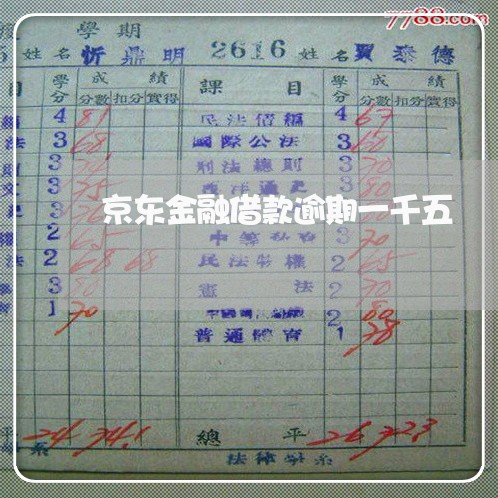 7788.com
學期
姓名 忻鼎明 2616 姓名 賈泰德
目 學分 成績 課目 學分 成績
分數 扣分 實得 分數 扣分 實得
4 81 民法債編 4 67
法 3 68 國際公法 3 60
3 刑法總則 3 70
文 3 75 西洋通史 3 80
京东金融借款逾期一千五
2 65 3 70
法 2 68 68 民法物權 2 65
3 80 憲法 2 70
1 70 2 80
普通體育 1 78
平 24 74.1 總平 26 72.3
系 法律學系